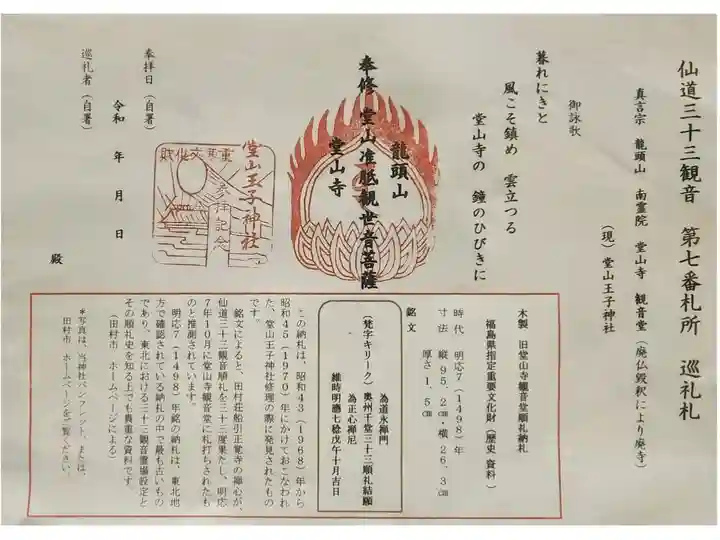 仙道三十三観音　第七番札所　巡礼札
真言宗　龍頭山　南霊院　堂山寺　観音堂（廃仏毀釈により廃寺）
（現）堂山王子神社
御詠歌
暮れにきと
風こそ鎮め　雲立つる
堂山寺の　鐘のひびきに
龍頭山
奉修　堂山准胝観世音菩薩
堂山寺
堂山王子神社
重要文化財
参拝記念
奉拝日（自署）
令和　年　月　日
巡礼者（自署）
殿
木製　旧堂山寺観音堂順礼納札
福島県指定重要文化財（歴史資料）
時代　明応７（１４９８）年
寸法　縦９５．２㎝・横２６．３㎝
厚さ１．５㎝
銘文
為道永禅門
（梵字キリーク）奥州千堂三十三順礼結願
為正心禅尼
維時明應七稔戊午十月吉日
この納札は、昭和４３（１９６８）年から
昭和４５（１９７０）年にかけておこなわれ
た、堂山王子神社修理の際に発見されたもの
です。
銘文によると、田村荘船引正覚寺の禅心が、
仙道三十三観音順礼を三十三度果たし、明応
７年１０月に堂山寺観音堂に札打ちされたも
のと推測されています。
明応７（１４９８）年銘の納札は、東北地
方で確認されている納札の中で最も古いもの
であり、東北における三十三観音霊場設定と
その順礼史を知る上でも貴重な資料です
（田村市　ホームページによる）
＊写真は、当神社パンフレット、または、
田村市　ホームページをご覧ください。